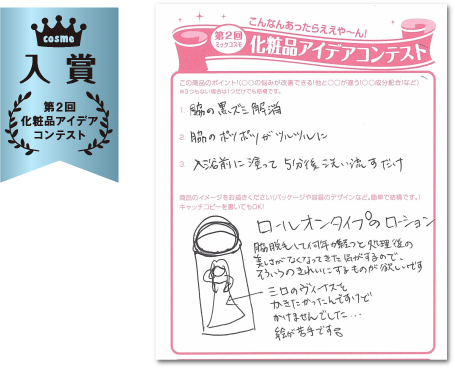 cosme
入賞
第2回
化粧品アイデア
コンテスト
こんなんあったらええや〜ん!
第2回
ミックコスモ
化粧品アイデアコンテスト
この商品のポイント!(○○の悩みが改善できる!他と○○が違う!○○成分配合!など)
※3つもない場合は1つだけでも結構です。
1. 脇の黒ズミ解消
2. 脇のポツポツがツルツルに
3. 入浴前に塗って5分後洗い流すだけ
商品のイメージをお描きください(パッケージや容器のデザインなど。簡単で結構です。)
キャッチコピーを書いてもOK!
ロールオンタイプのローション
脇脱毛して何年か経つと処理後の
美しさがなくなってきた気がするので、
そういうのきれいにするものが欲しいです
ミロのヴィーナスを
かきたかったんですけど
かけませんでした…
絵が苦手です